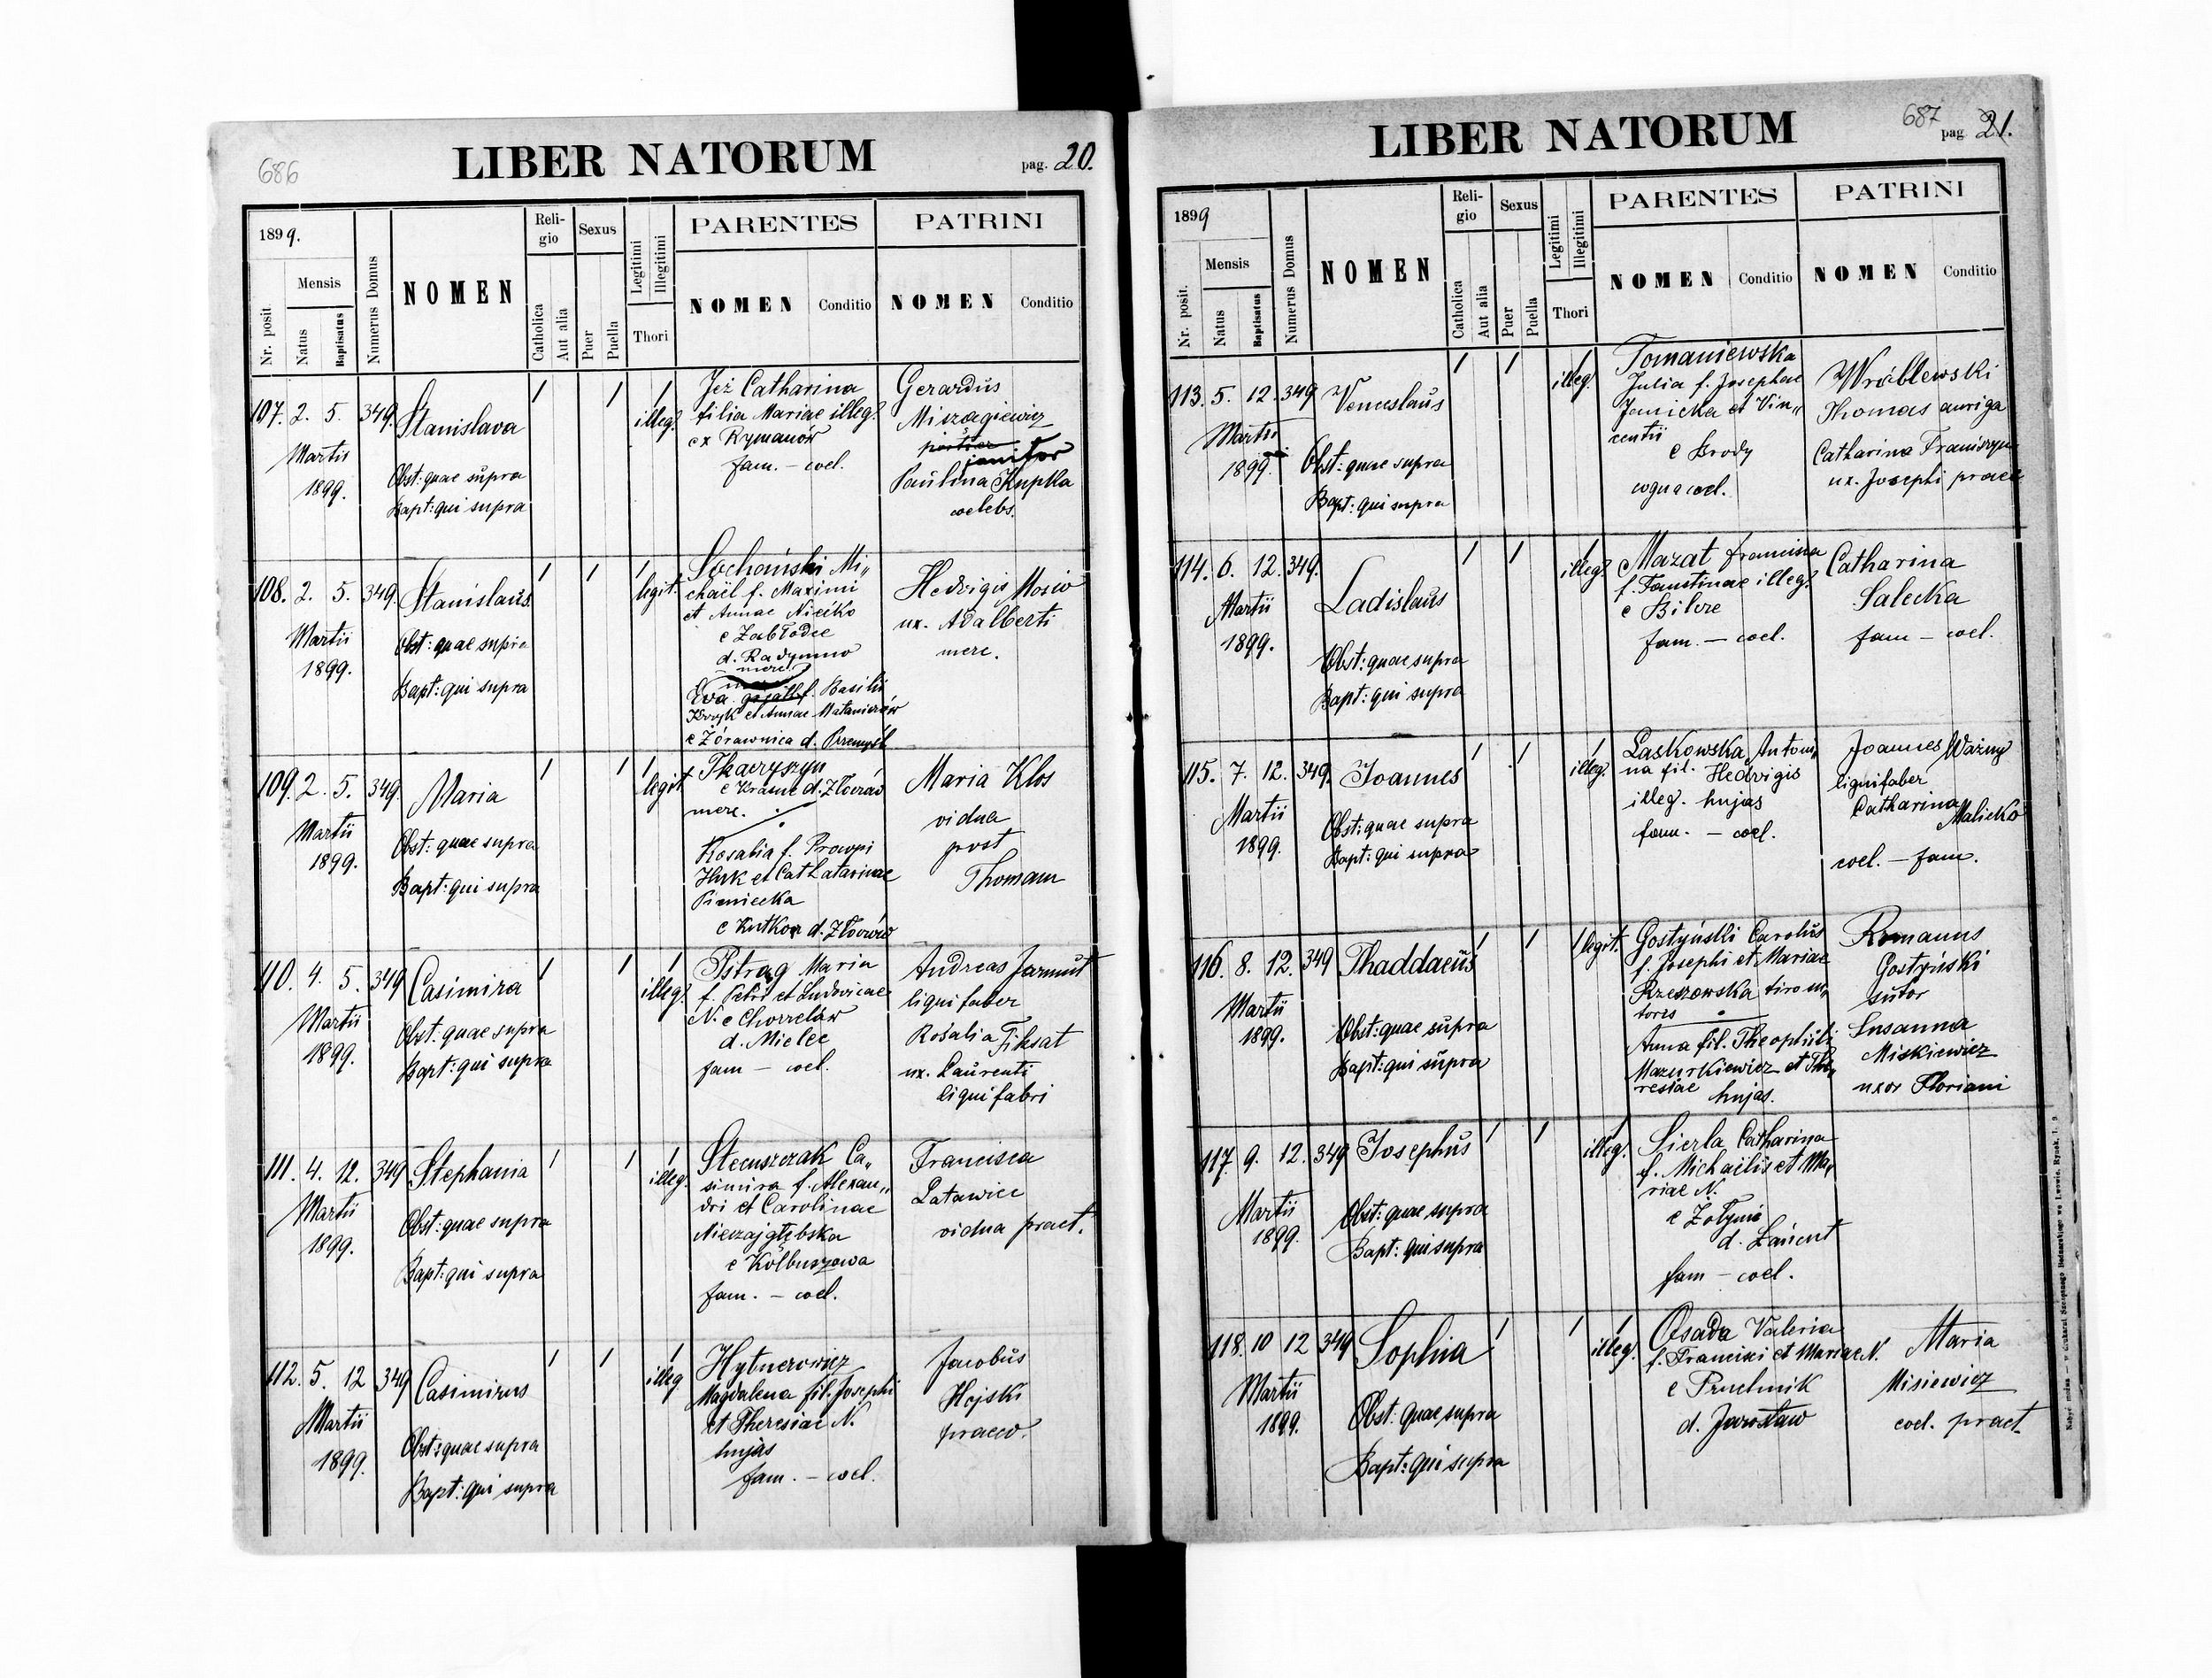 686
LIBER NATORUM
pag. 20.
1899.
Nr. posit.
Mensis
Natus
Baptisatus
Numerus Domus
NOMEN
Reli-
gio
Catholica
Aut alia
Sexus
Puer
Puella
Legitimi
Illegitimi
Thori
PARENTES
NOMEN
Conditio
PATRINI
NOMEN
Conditio
107. 2. 5. 349.
Martii
1899.
Stanislava
Obst: quae supra
Bapt: qui supra
illeg.
Jeż Catharina
filia Mariae illeg.
ex Rymanów
fam. - coel.
Gerardus
janitor
Paulina Kupka
coelebs.
108. 2. 5. 349.
Martii
1899.
Stanislaus
Obst: quae supra
Bapt: qui supra
legit.
Sochański Mi„
chaël f. Maximi
et Annae Niciko
e Zabłodce
d. Radymno
merc.
Eva f. Basilii
et Annae
e Żórawnica d. Przemyśl
Hedvigis Mosio
ux. Adalberti
merc.
109. 2. 5. 349.
Martii
1899.
Maria
Obst: quae supra
Bapt: qui supra
legit
Tkaczyszyn
e Krasne d. Złoczów
merc.
Rosalia f.
Huk et Cathatarinae
Pieniecka
e Kutkor d. Złoczów
Maria Klos
vidua
post
Thomam
110. 4. 5. 349
Martii
1899.
Casimira
Obst: quae supra
Bapt: qui supra
illeg.
Pstrąg Maria
f. Petri et Ludovicae
N. e Chorzelów
d. Mielec
fam - coel.
Andreas Jarmut
lignifaber
Rosalia Fiksat
ux. Laurenti
lignifabri
111. 4. 12. 349
Martii
1899.
Stephania
Obst: quae supra
Bapt: qui supra
illeg.
Stecuszczak Ca„
simira f. Alexan„
dri et Carolinae
Niezajglębska
e Kolbuszowa
fam. - coel.
Francisca
Latawiec
vidua praet.
112. 5. 12 349
Martii
1899.
Casimirus
Obst: quae supra
Bapt: qui supra
illeg
Hytnerowicz
Magdalena fil. Josephi
et Theresiae N.
hujas
fam. - coel.
Jacobus
Hejski
praeco.
LIBER NATORUM
687
pag 21.
1899
Nr. posit.
Mensis
Natus
Baptisatus
Numerus Domus
NOMEN
Reli-
gio
Catholica
Aut alia
Sexus
Puer
Puella
Legitimi
Illegitimi
Thori
PARENTES
NOMEN
Conditio
PATRINI
NOMEN
Conditio
113. 5. 12. 349
Martii
1899.
Venceslaus
Obst: quae supra
Bapt: qui supra
illeg.
Tomaniewska
Julia f. Josephae
Janicka et Vin„
centii
e Brody
coqua coel.
Wróblewski
Thomas auriga
Catharina
ux. Josephi
114. 6. 12. 349.
Martii
1899.
Ladislaus
Obst: quae supra
Bapt: qui supra
illeg.
Mazat Francisca
f. Faustinae illeg.
e Bilcze
fam. - coel.
Catharina
Salecka
fam - coel.
115. 7. 12. 349.
Martii
1899.
Joannes
Obst: quae supra
Bapt: qui supra
illeg.
Laskowska Antoni„
na fil. Hedvigis
illeg. hujas
fam. - coel.
Joannes Ważny
lignifaber
Catharina
Malicko
coel. - fam.
116. 8. 12. 349
Martii
1899.
Thaddaeus
Obst: quae supra
Bapt: qui supra
legit.
Gostyński Carolus
f. Josephi et Mariae
Rzeszowska tiro su„
toris
Anna fil. Theophili
Mazurkiewicz et The„
resiae
hujas.
Romanus
Gostyński
sutor
Susanna
Miskiewicz
uxor Floriani
117. 9. 12. 349
Martii
1899.
Josephus
Obst: quae supra
Bapt: qui supra
illeg.
Sierla Catharina
f. Michaëlis et Ma„
riae N.
e Żołynia
d. Łańcut
fam - coel.
118. 10 12 349
Martii
1899.
Sophia
Obst: quae supra
Bapt: qui supra
illeg.
Osada Valeria
f. Francisci et Mariae N.
e Pruchnik
d. Jarosław
Maria
Misiewicz
coel. praet.